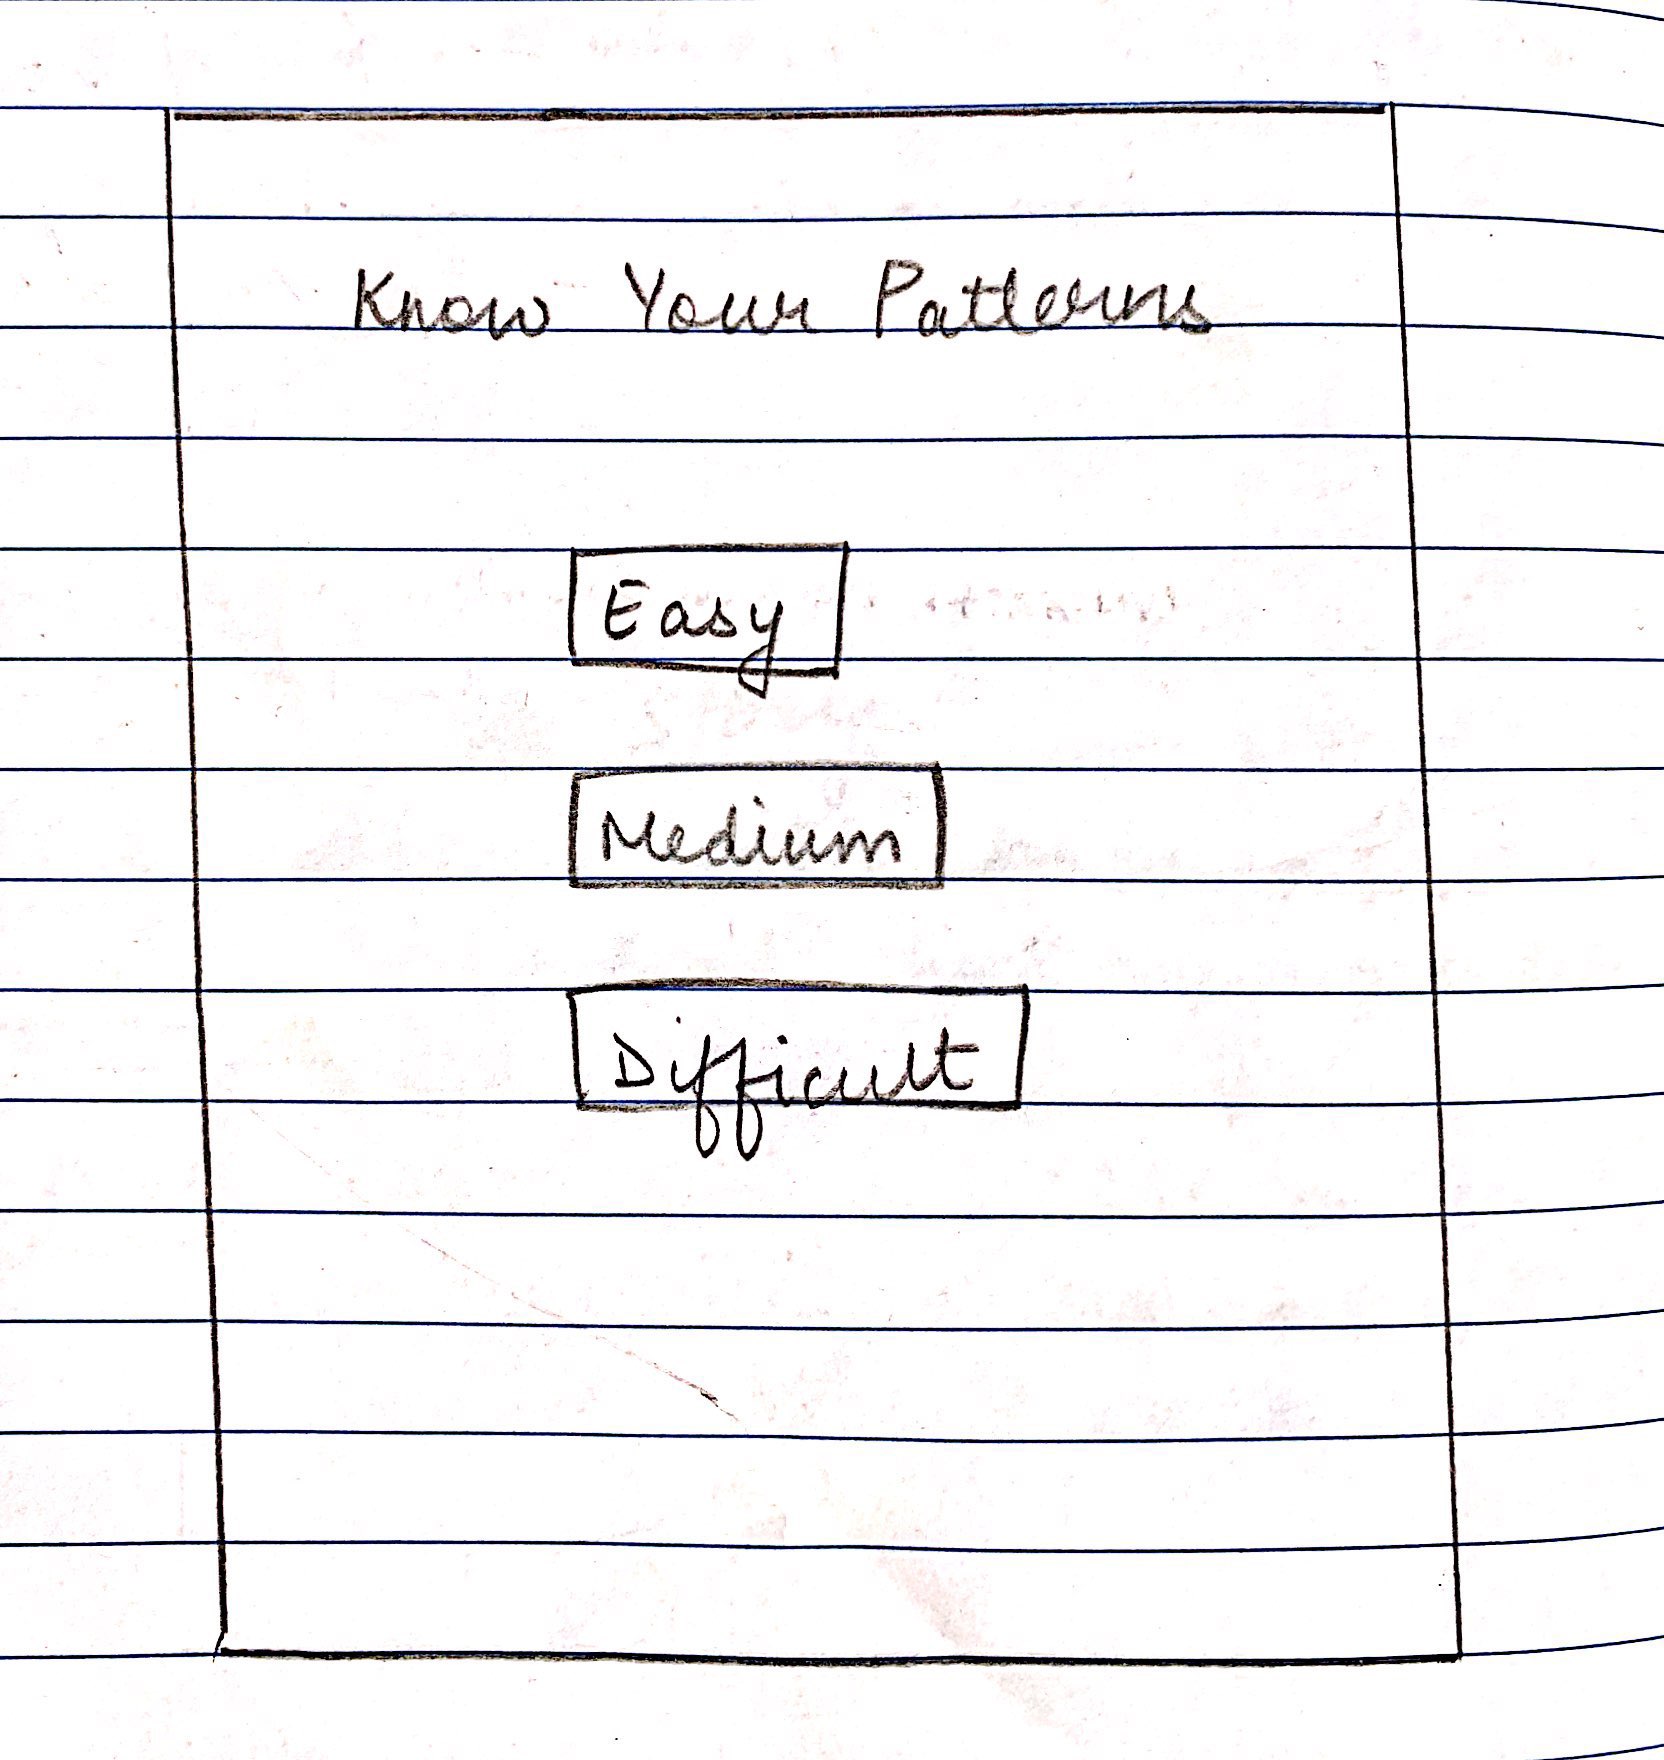 Know Your Patterns
Easy
Medium
Difficult